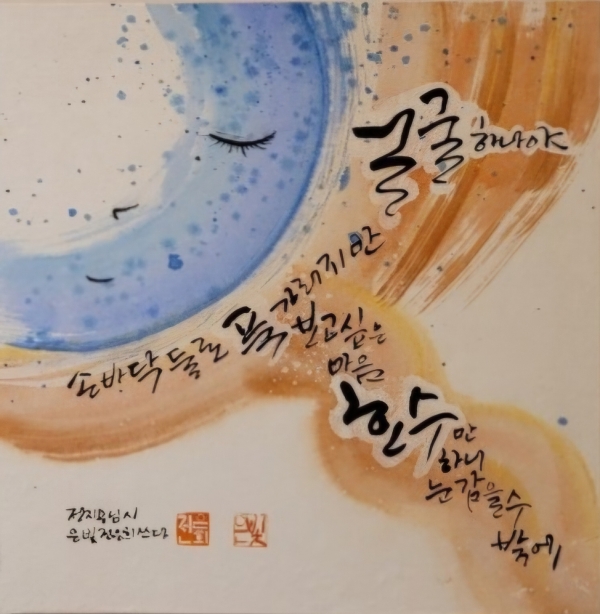 얼굴 하나야
손바닥 둘로 폭 가리지만
보고싶은
마음
한수만
하니
눈 감을 수
밖에
정지용님 시
은빛 전은희 쓰다
은빛